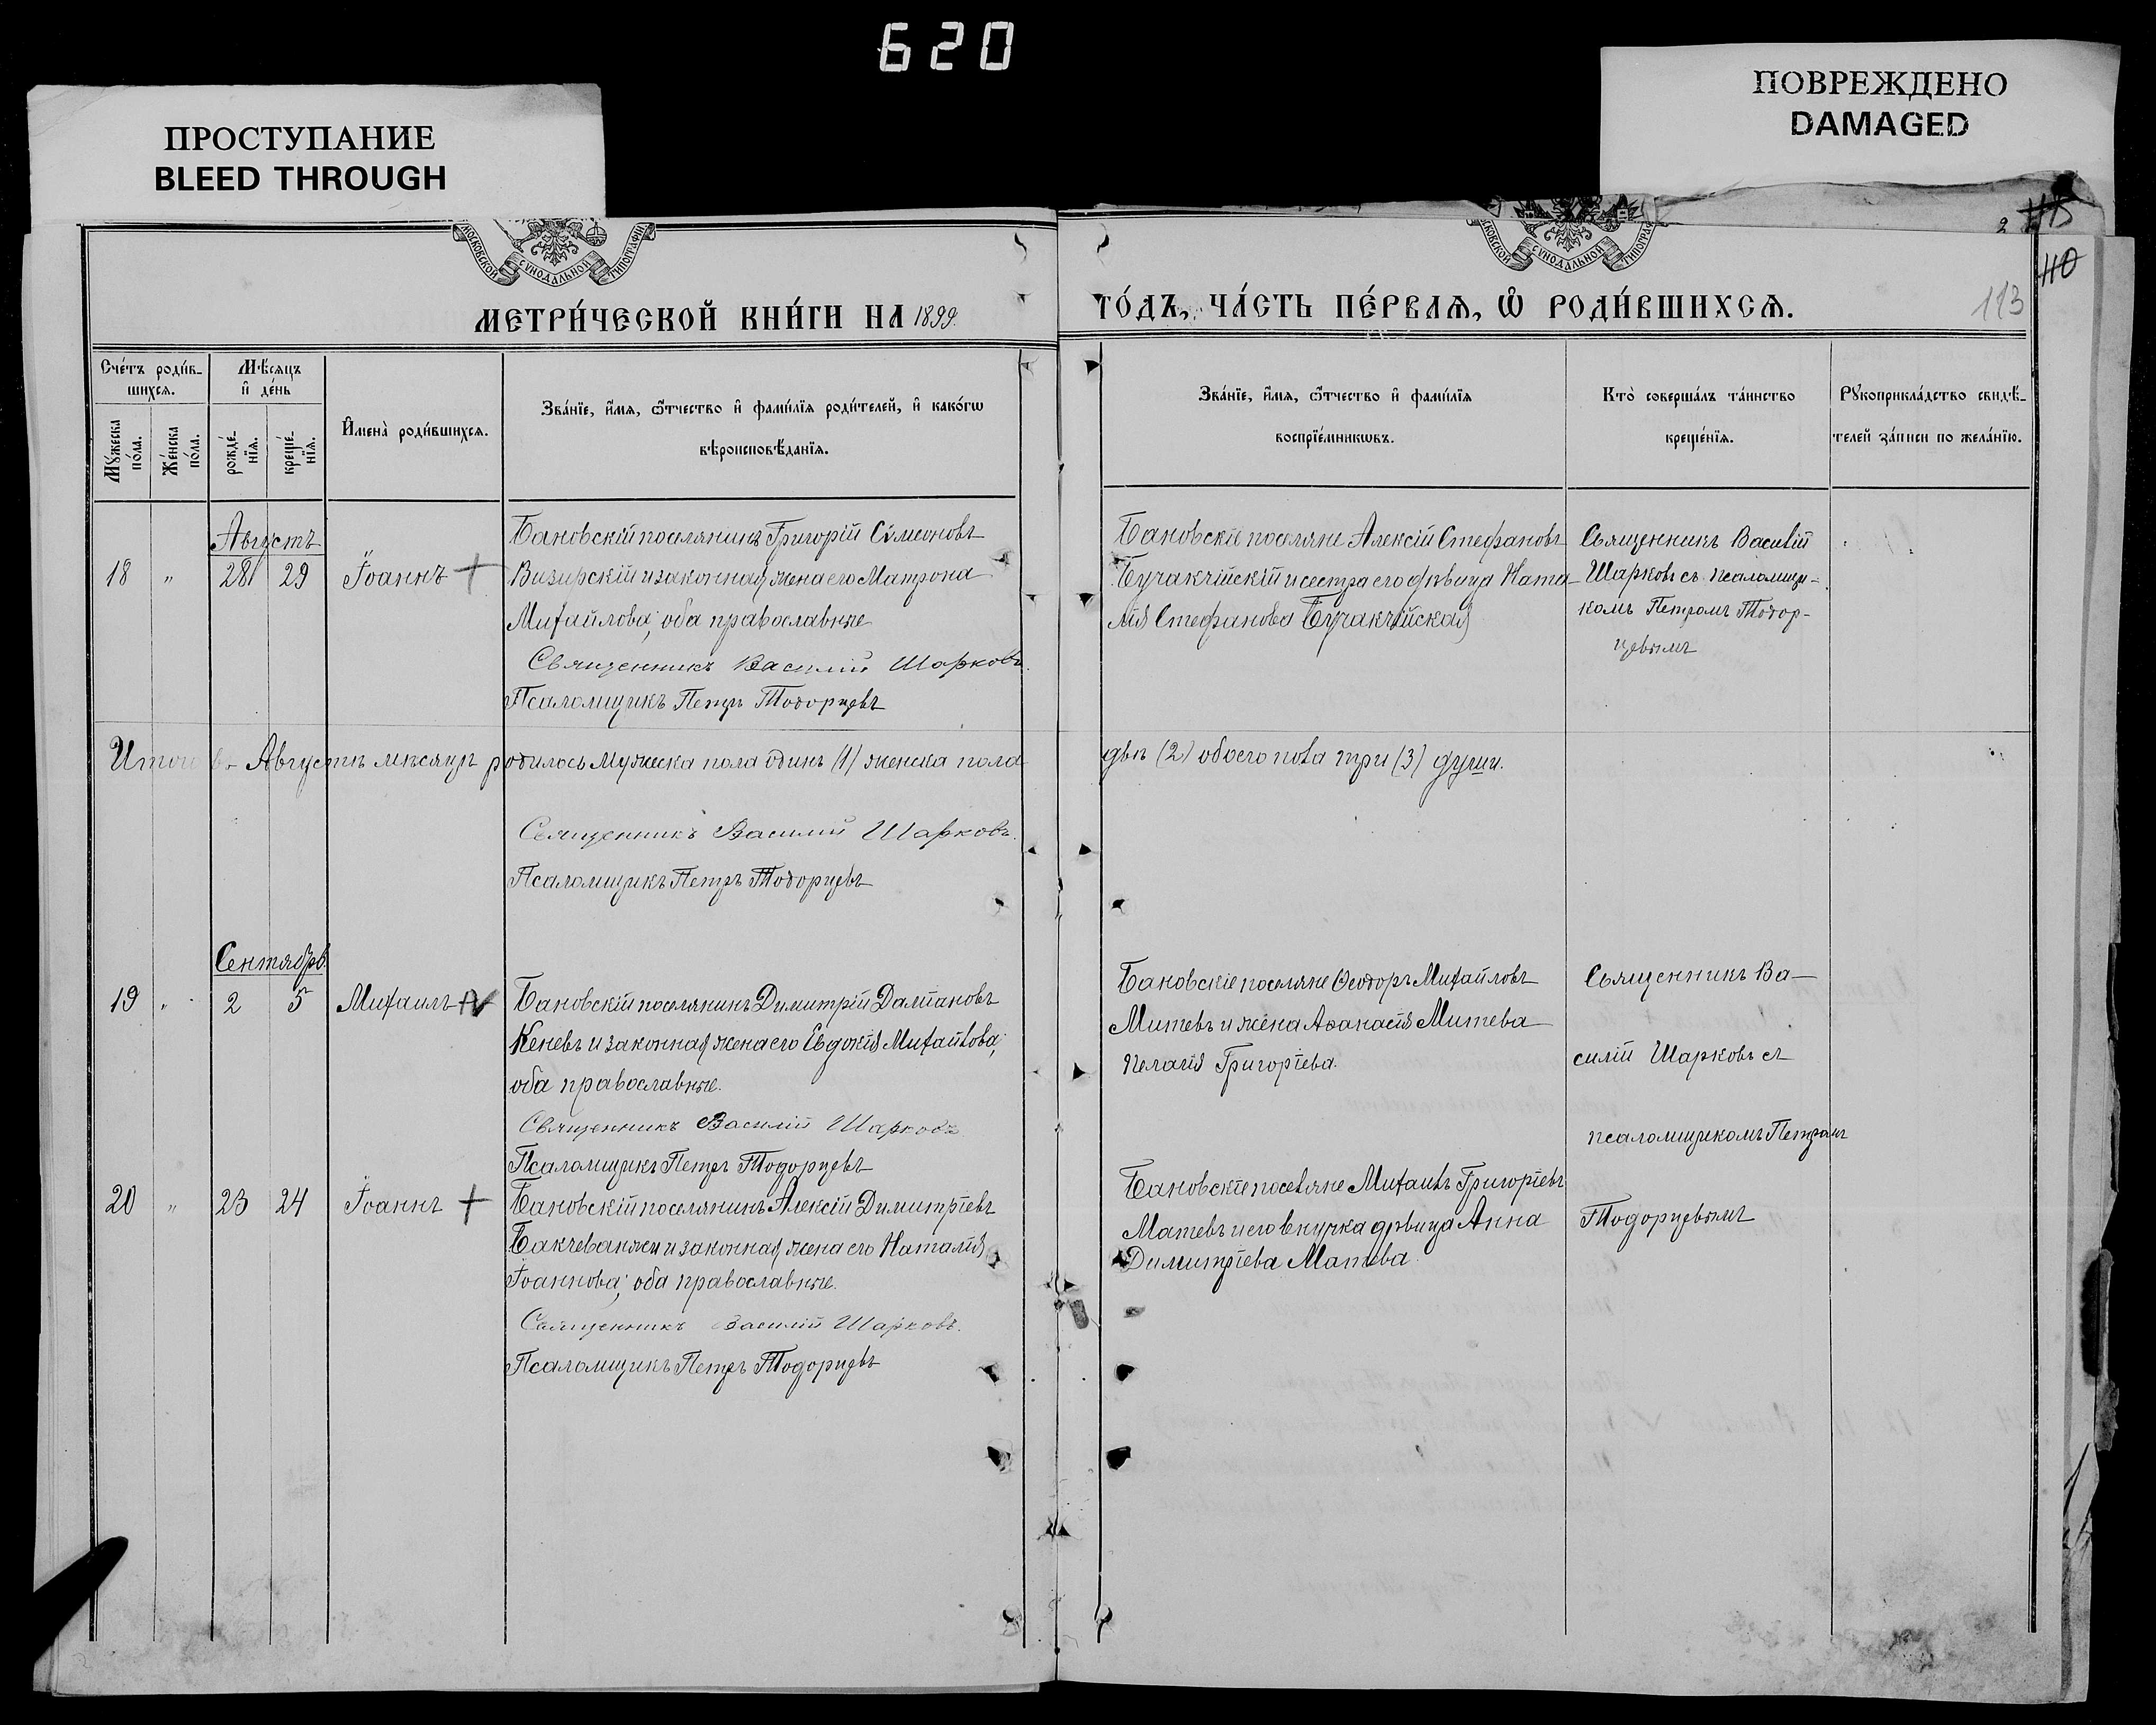 620
ПРОСТУПАНИЕ
BLEED THROUGH
ПОВРЕЖДЕНО
DAMAGED
МОСКОВСКОЙ СѴНОДАЛЬНОЙ ТИПОГРАФІИ
МОСКОВСКОЙ СѴНОДАЛЬНОЙ ТИПОГРАФ
115
110
113
МЕТРИ́ЧЕСКОЙ КНИ́ГИ НА 1899.
ГО́ДЪ, ЧА́СТЬ ПЕ́РВАѦ, Ѽ РОДИ́ВШИХСѦ.
Сче́тъ роди́в-
шихсѧ.
Мꙋ́жеска по́ла.
Же́нска по́ла.
Мѣ́сѧцъ
и҆ де́нь
рожде́-нїѧ.
креще́-нїѧ.
И҆мена̀ роди́вшихсѧ.
Зва́нїе, и҆́мѧ, ѻ҆́тчество и҆ фами́лїѧ роди́телей, и҆ како́гѡ
вѣроисповѣ́данїѧ.
Зва́нїе, и҆́мѧ, ѻ҆́тчество и҆ фами́лїѧ
воспрїе́мникѡвъ.
Кто̀ соверша́лъ та́инство
креще́нїѧ.
Рꙋкоприкла́дство свидѣ́-
телей за́писи по жела́нїю.
Августъ
18 " 28 29 Іоаннъ
Бановскій поселянинъ Григорій Симеоновъ
Визирскій и законная жена его Матрона
Михайлова, оба православные
Священникъ Василій Шарковъ.
Псаломщикъ Петръ Тодорцевъ
Бановскіе поселяне Алексій Стефановъ
Бучакчійскій и сестра его дѣвица Ната-
лія Стефанова Бучакчійская
Священникъ Василій
Шарковъ съ псаломщи-
комъ Петромъ Тодор-
цевымъ
Итого въ Августѣ мѣсяцѣ родилось мужеска пола одинъ (1) женска пола
двѣ (2) обоего пола три (3) души.
Священникъ Василій Шарковъ.
Псаломщикъ Петръ Тодорцевъ
Сентябрь
19 " 2 5 Михаилъ
Бановскій поселянинъ Димитрій Даміановъ
Кеневъ и законная жена его Евдокія Михайлова,
оба православные.
Священникъ Василій Шарковъ
Псаломщикъ Петръ Тодорцевъ
Бановскіе поселяне Ѳеодоръ Михайловъ
Митевъ и жена Аѳанасія Митева
Пелагія Григоріева.
Священникъ Ва-
силій Шарковъ съ
псаломщикомъ Петромъ
Тодорцевымъ
20 " 23 24 Іоаннъ
Бановскій поселянинъ Алексій Димитріевъ
Бакчеванжи и законная жена его Наталія
Іоаннова, оба православные.
Священникъ Василій Шарковъ.
Псаломщикъ Петръ Тодорцевъ
Бановскіе поселяне Михаилъ Григоріевъ
Матевъ и его внучка дѣвица Анна
Димитріева Матева